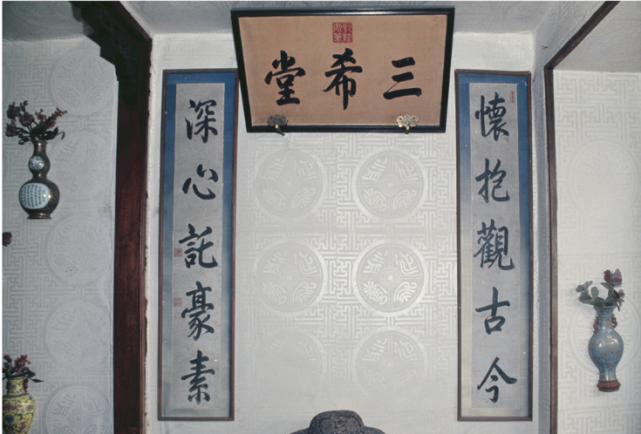 三希堂
懷抱觀古今
深心託豪素